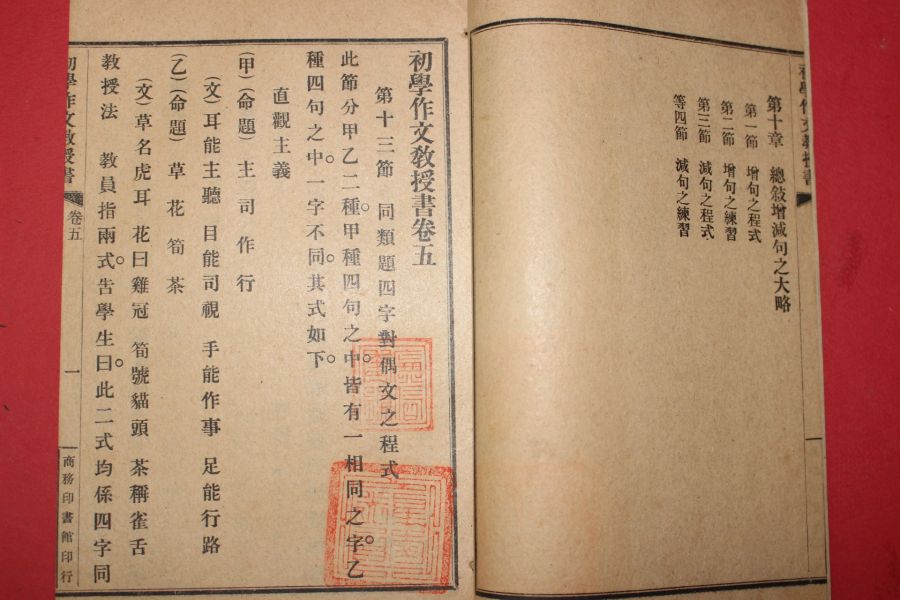 初學作文教授書
第十章　總敍增減句之大略
第一節　增句之程式
第二節　增句之練習
第三節　減句之程式
等四節　減句之練習
一
初學作文教授書卷五
第十三節　同類題四字對偶文之程式
此節分甲乙二種。甲種四句之中。皆有一相同之字。乙
種四句之中。一字不同。其式如下。
直觀主義
（甲）（命題）主司作行
（文）耳能主聽　目能司視　手能作事　足能行路
（乙）（命題）草花筍茶
（文）草名虎耳　花曰雞冠　筍號貓頭　茶稱雀舌
教授法　教員指兩式。告學生曰。此二式均係四字同
初學作文教授書
卷五
一
商務印書館印行